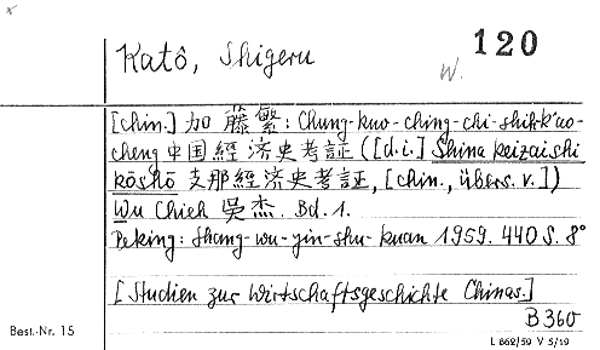 Katô, Shigeru
W. 120
[chin.] 加藤繁: Chung-kuo-ching-chi-shih-k'ao-
cheng 中国經済史考証 ([d.i.] Shina keizaishi
kōshō 支那經済史考証, [chin., übers. v.])
Wu Chieh 吳杰. Bd. 1.
Peking: Shang-wu-yin-shu-kuan 1959. 440 S. 8°
[Studien zur Wirtschaftsgeschichte Chinas.]
B 360
Best.-Nr. 15
L 662/59 V 5/19